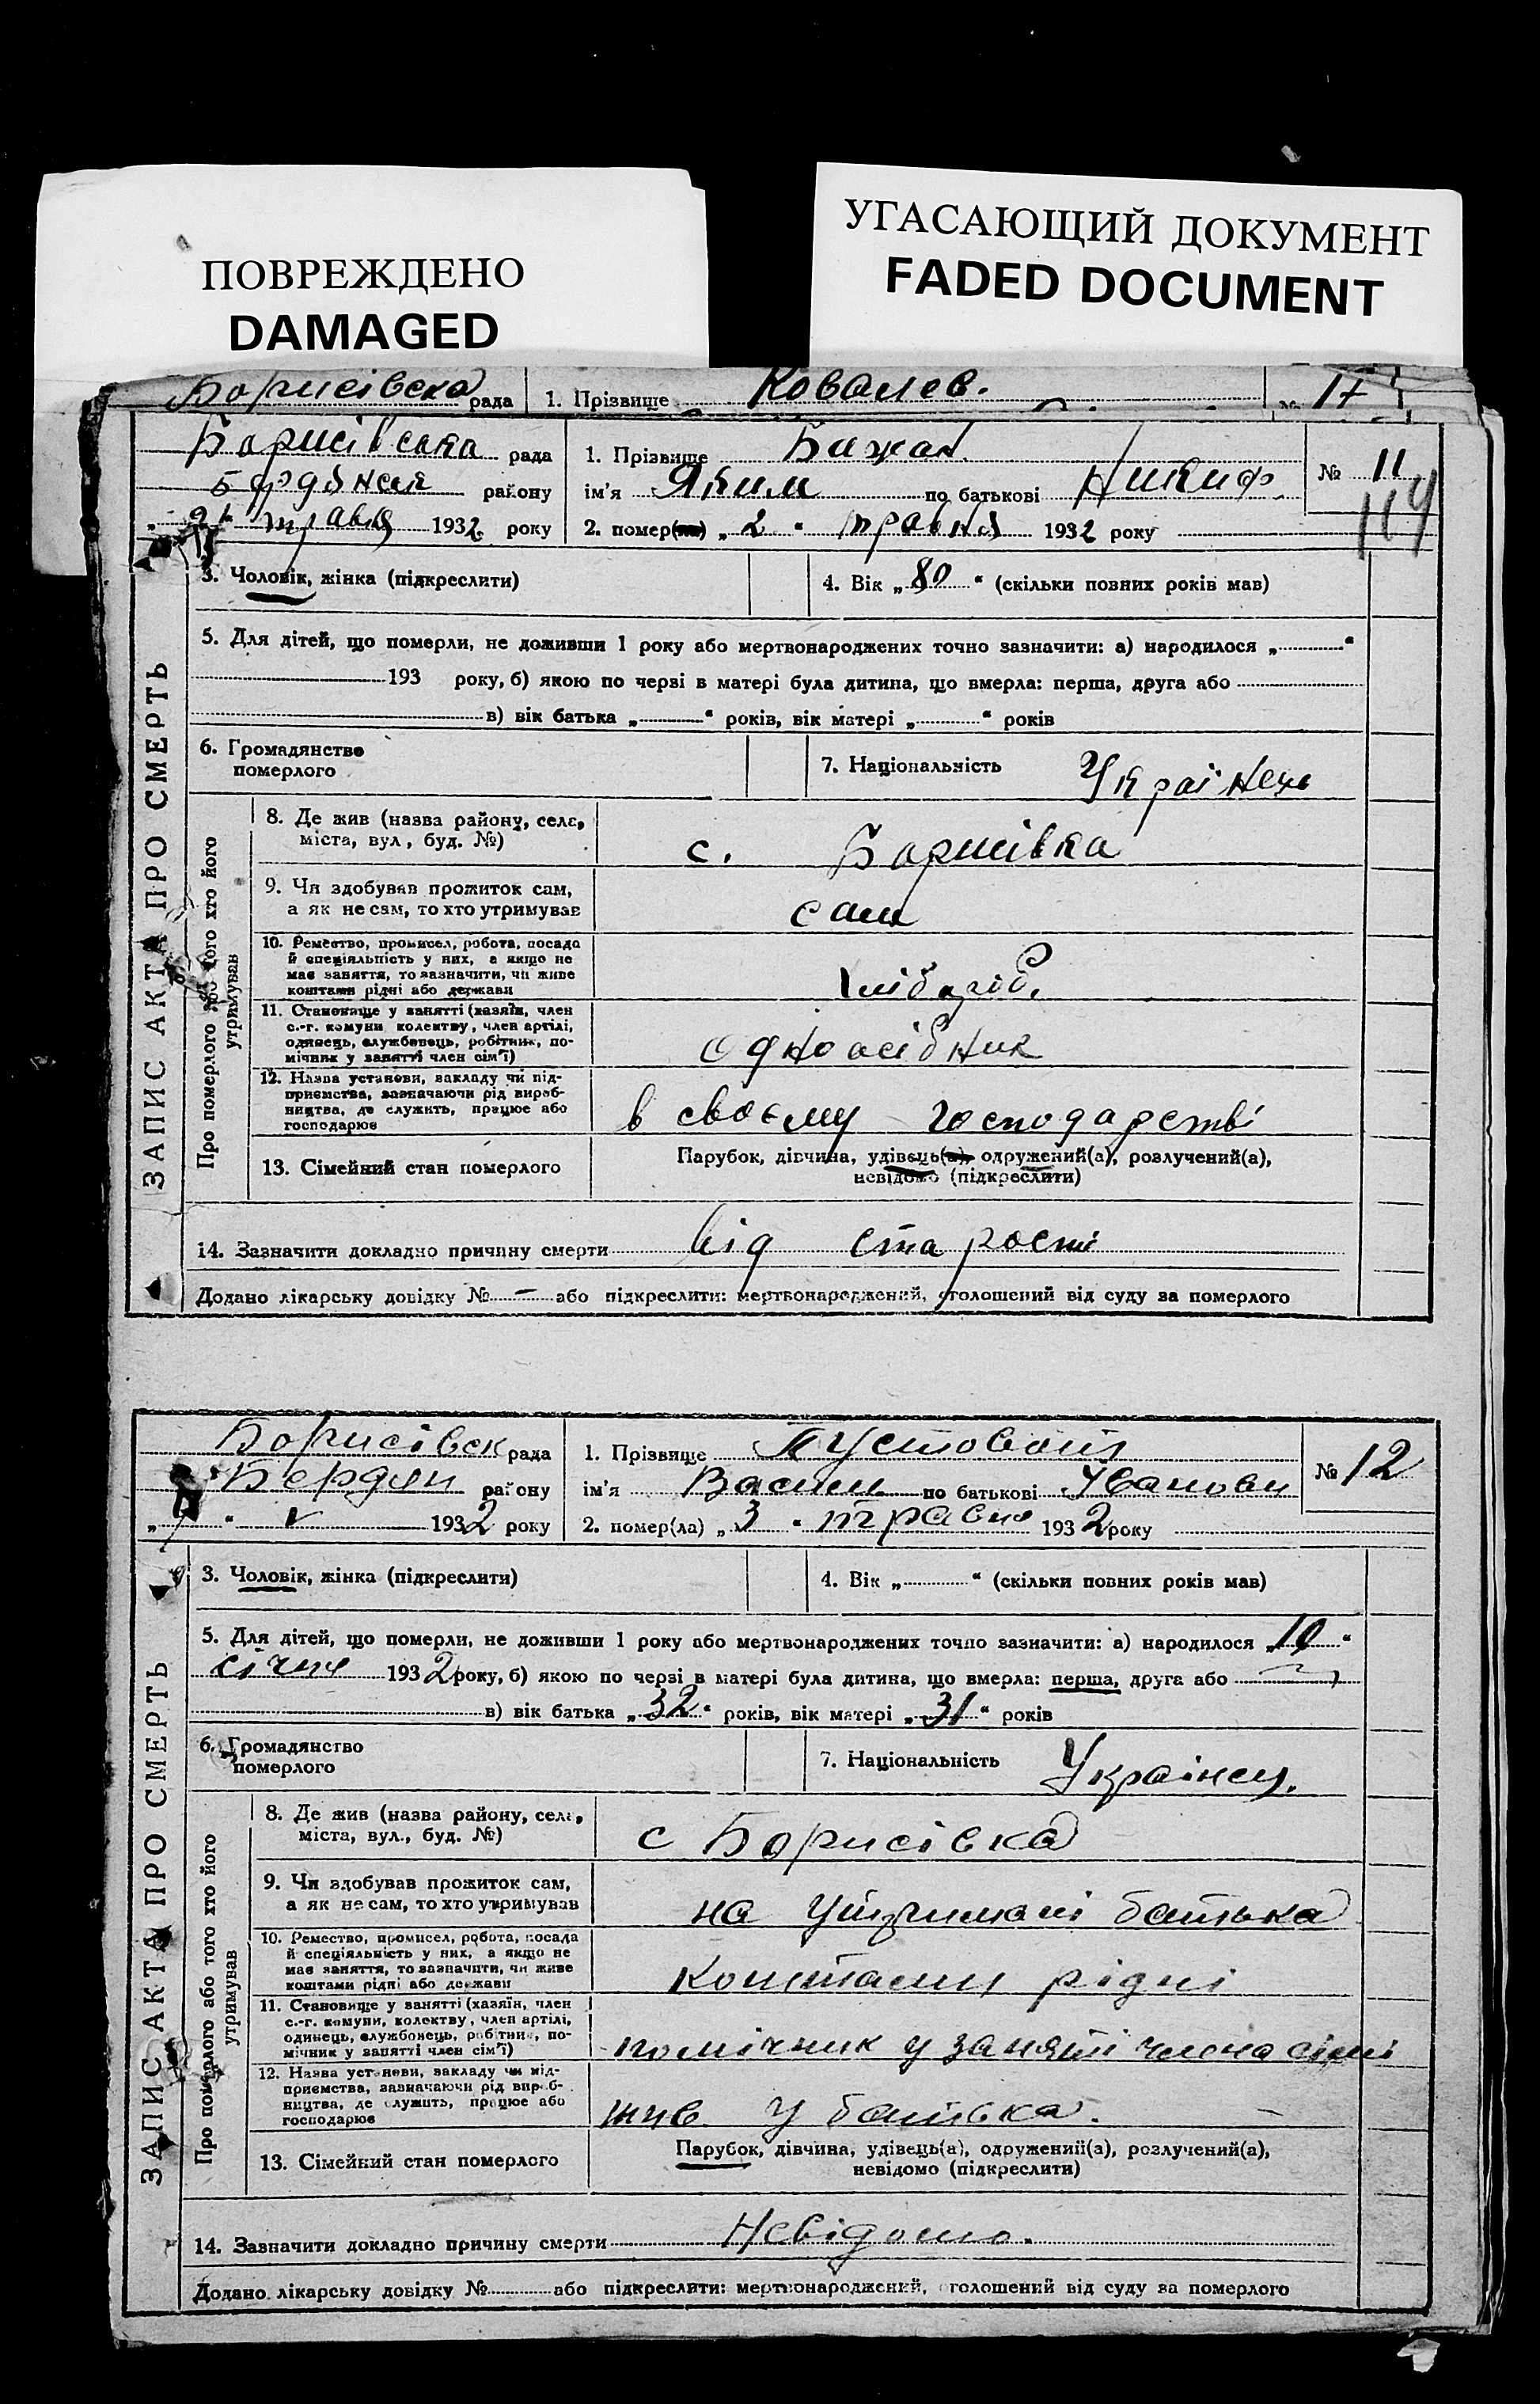 ПОВРЕЖДЕНО
DAMAGED
УГАСАЮЩИЙ ДОКУМЕНТ
FADED DOCUMENT
Борисівска рада 1. Прізвище Ковалев. № 17
Борисівська рада 1. Прізвище Бажан № 11
району ім'я Яким по батькові Никиф. 119
травня 1932 року 2. помер(ла) „ 2 " травня 1932 року
ЗАПИС АКТА ПРО СМЕРТЬ
3. Чоловік, жінка (підкреслити) 4. Вік „ 80 " (скільки повних років мав)
5. Для дітей, що померли, не доживши 1 року або мертвонароджених точно зазначити: а) народилося „ "
193 року, б) якою по черзі в матері була дитина, що вмерла: перша, друга або
в) вік батька „ " років, вік матері „ " років
6. Громадянство померлого 7. Національність Українець
Про померлого або того хто його утримував
8. Де жив (назва району, села,
міста, вул., буд. №) с. Борисівка
9. Чи здобував прожиток сам,
а як не сам, то хто утримував сам
10. Ремество, промисел, робота, посада
й спеціяльність у них, а якщо не
має заняття, то зазначити, чи живе
коштами рідні або держави хлібороб.
11. Становище у занятті (хазяїн, член
с.-г. комуни, колективу, член артілі,
одинець, службовець, робітник, по-
мічник у занятті член сім'ї) одноосібник
12. Назва установи, закладу чи під-
приємства, зазначаючи рід вироб-
ництва, де служить, працює або
господарює в своєму господарстві
13. Сімейний стан померлого Парубок, дівчина, удівець(а), одружений(а), розлучений(а),
невідомо (підкреслити)
14. Зазначити докладно причину смерти Від старости
Додано лікарську довідку № — або підкреслити: мертвонароджений, оголошений від суду за померлого
Борисівск рада 1. Прізвище Пустовойт № 12
Бердян району ім'я Василь по батькові Іванови
„ 7 " V 1932 року 2. помер(ла) „ 3 " травня 1932 року
ЗАПИС АКТА ПРО СМЕРТЬ
3. Чоловік, жінка (підкреслити) 4. Вік „ " (скільки повних років мав)
5. Для дітей, що померли, не доживши 1 року або мертвонароджених точно зазначити: а) народилося „ 10 "
січня 1932 року, б) якою по черзі в матері була дитина, що вмерла: перша, друга або
в) вік батька „ 32 " років, вік матері „ 31 " років
6. Громадянство померлого 7. Національність Українец.
Про померлого або того хто його утримував
8. Де жив (назва району, села,
міста, вул., буд. №) с Борисівка
9. Чи здобував прожиток сам,
а як не сам, то хто утримував на утримані батька
10. Ремество, промисел, робота, посада
й спеціяльність у них, а якщо не
має заняття, то зазначити, чи живе
коштами рідні або держави коштами рідні
11. Становище у занятті (хазяїн, член
с.-г. комуни, колективу, член артілі,
одинець, службовець, робітник, по-
мічник у занятті член сім'ї) помічник у заняті члена сімї
12. Назва установи, закладу чи під-
приємства, зазначаючи рід вироб-
ництва, де служить, працює або
господарює жив у батька. —
13. Сімейний стан померлого Парубок, дівчина, удівець(а), одружений(а), розлучений(а),
невідомо (підкреслити)
14. Зазначити докладно причину смерти Невідомо.
Додано лікарську довідку № або підкреслити: мертвонароджений, оголошений від суду за померлого